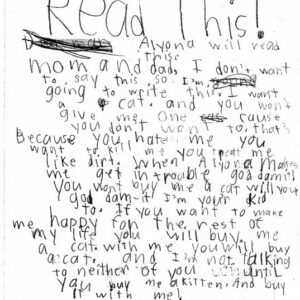 Read This!
Alyona will read
this
mom and dad, I don't want
to say this so I'm
going to write this. I want
a cat. and you won't
give me One cause
you don't wont to. that's
Because you hate me you
want to me you treat me
like dirt. When Alyona makes
me get in trouble god damit
you wont buy me a cat will you
god damit I'm your kid
to. if you want to make
me happy for the rest of
my life you will buy me
a cat with me, you will buy
a cat. and I'm not talking
to neither of you until
you buy me a kitten. And buy
it with me!